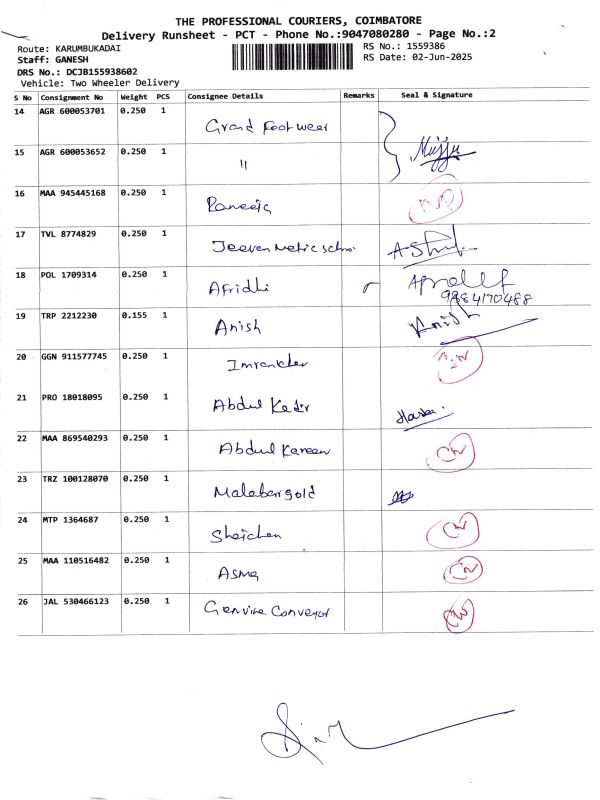 THE PROFESSIONAL COURIERS, COIMBATORE
Delivery Runsheet - PCT - Phone No.:9047080280 - Page No.:2
Route: KARUMBUKADAI RS No.: 1559386
Staff: GANESH RS Date: 02-Jun-2025
DRS No.: DCJB155938602
Vehicle: Two Wheeler Delivery
S No Consignment No Weight PCS Consignee Details Remarks Seal & Signature
14 AGR 600053701 0.250 1 Grand Footweer
15 AGR 600053652 0.250 1 "
16 MAA 945445168 0.250 1 Raneeja
17 TVL 8774829 0.250 1 Jeeven Metric
18 POL 1709314 0.250 1 Afridhi
9984170488
19 TRP 2212230 0.155 1 Anish Anish
20 GGN 911577745 0.250 1
21 PRO 18018095 0.250 1 Abdul Kadir
22 MAA 869540293 0.250 1 Abdul Kareen
23 TRZ 100128070 0.250 1 Malabargold
24 MTP 1364687 0.250 1
25 MAA 110516482 0.250 1 Asma
26 JAL 530466123 0.250 1 Conveyor